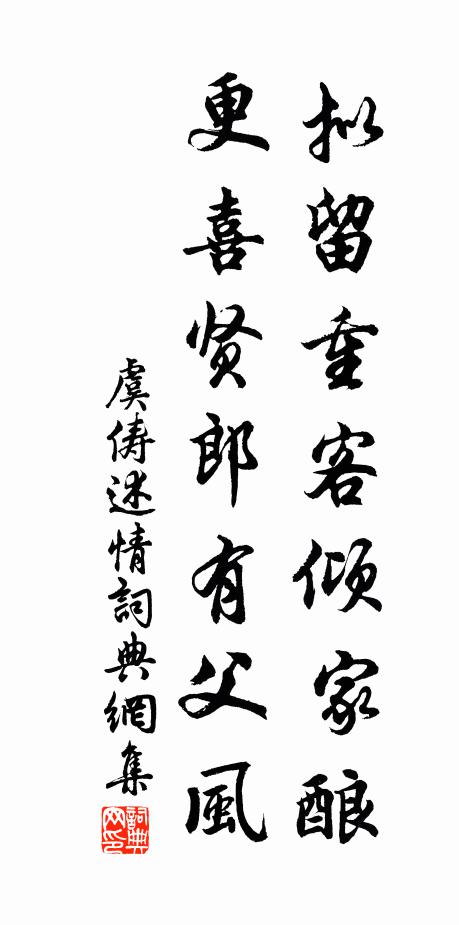 拟留重客倾家酿
更喜贤郎有父風
虞俦述情詞典網集
詞典网印